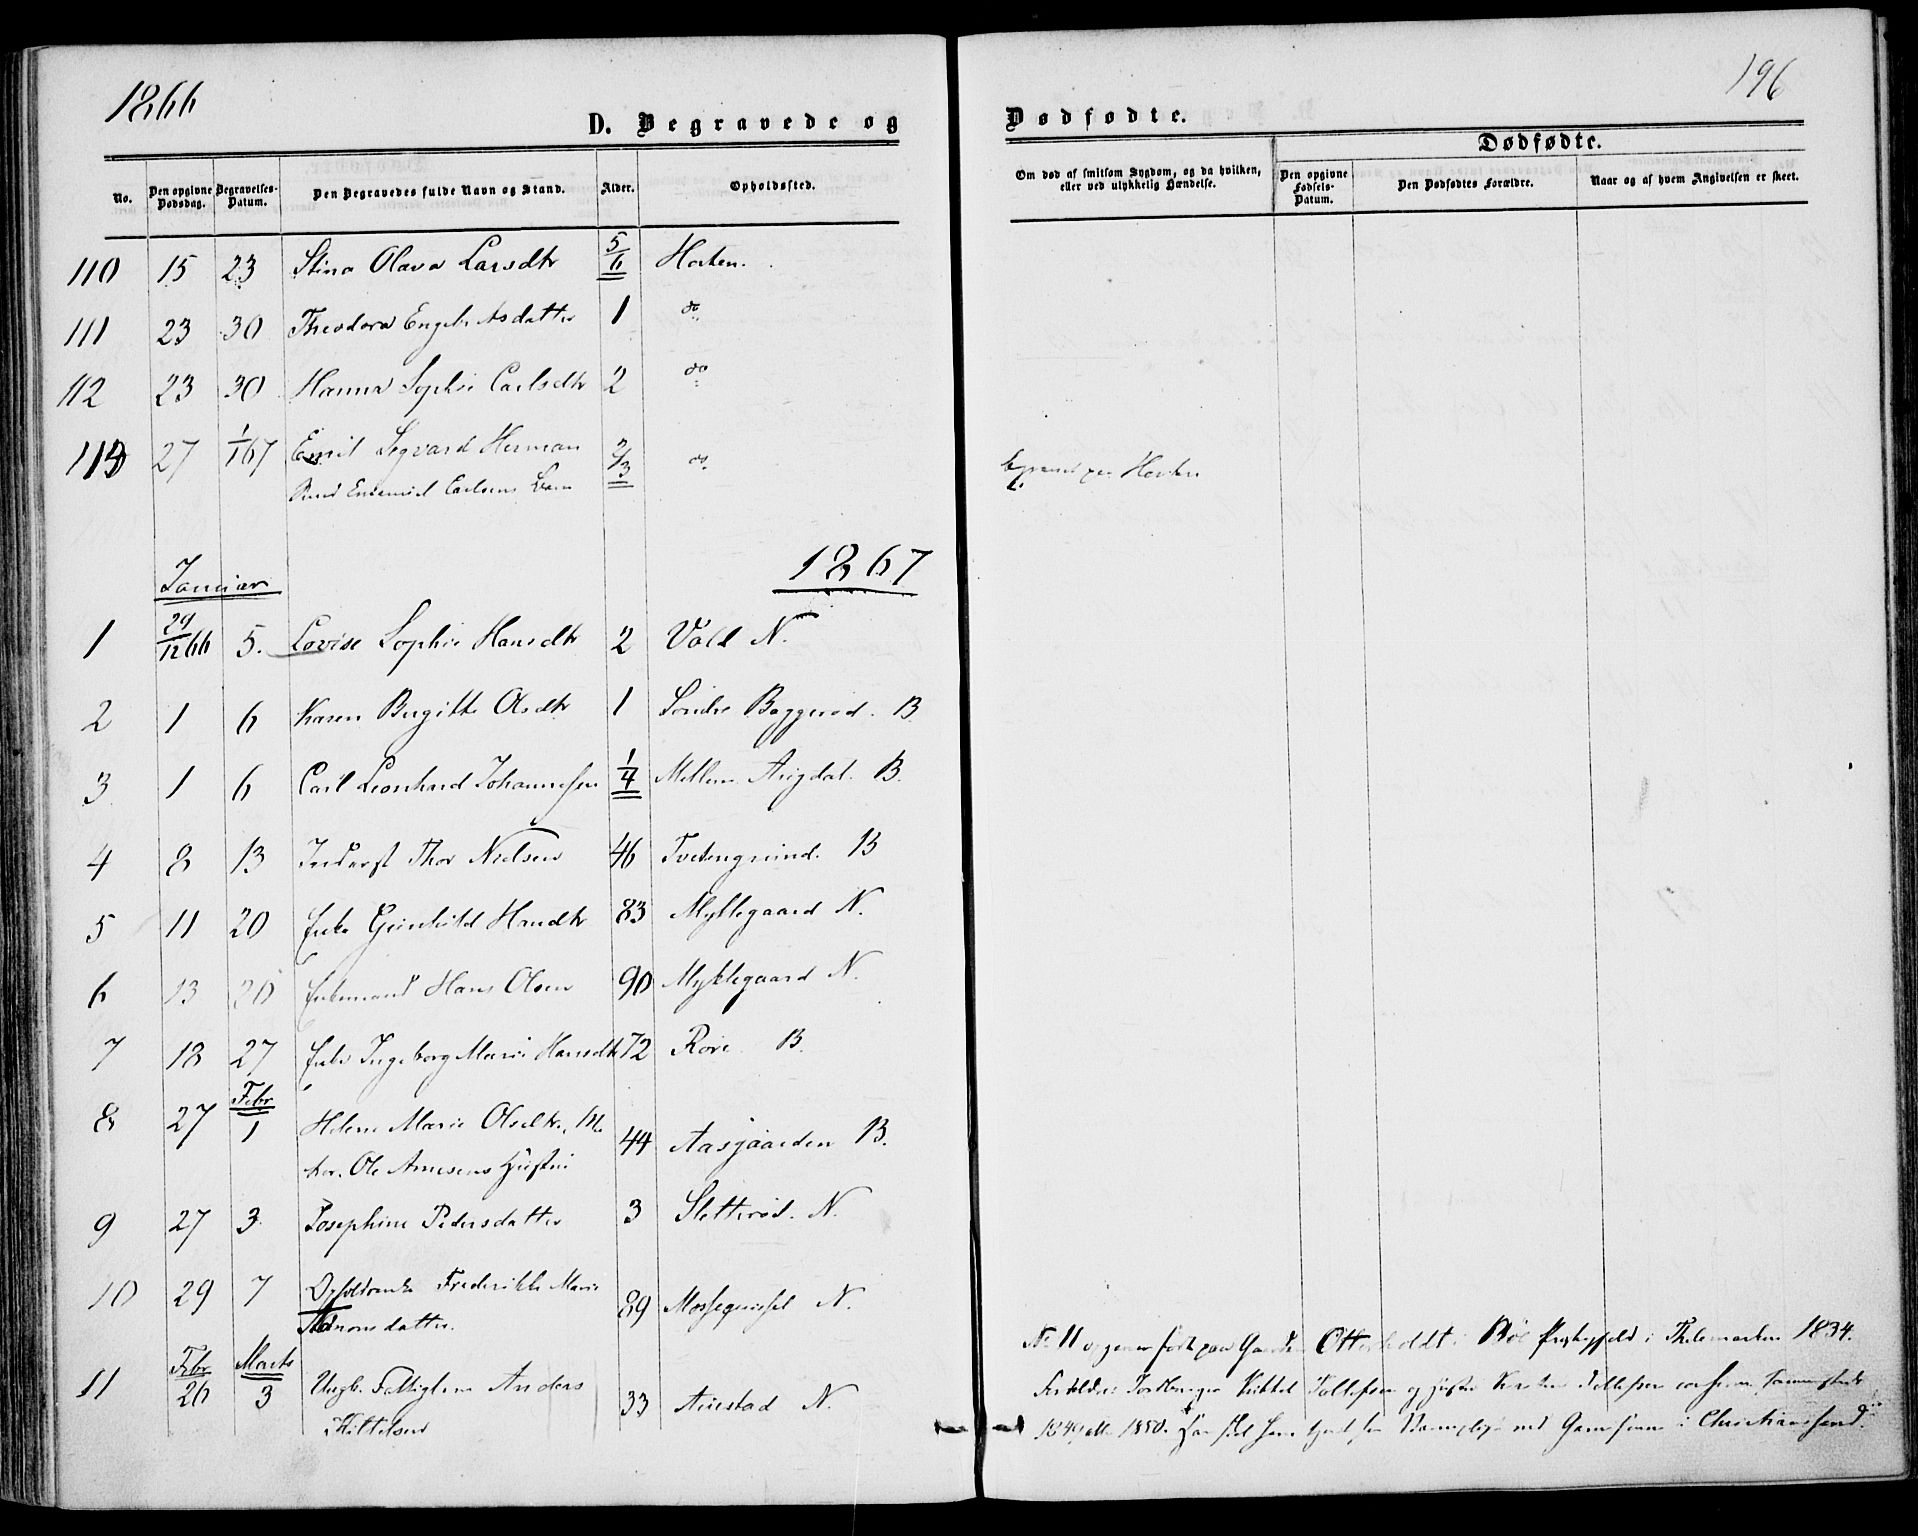 1866
196
D. Begravede og
Dødfødte.
No.
Den opgivne Dødsdag.
Begravelses-Datum.
Den Begravedes fulde Navn og Stand.
Alder.
Opholdssted.
Om død af smitsom Sygdom, og da hvilken, eller ved ulykkelig Hændelse.
Dødfødte.
Den opgivne Fødsels-Datum.
Den Dødfødtes Forældre.
Naar og af hvem Angivelsen er skeet.
110 15 23 Stina Olava Larsdtr 5/6 Horten.
111 23 30 Theodora Engebretsdatter 1 do
112 23 30 Hanna Sophie Carlsdtr 2 do
113 27 1/1 67 Emil Sigvard Herman 2/3 do
Carlsens Barn
Horten
1867
Januar
1 29/12 66 5. Lovise Sophie Hansdtr 2 Vold N.
2 1 6 Karen Birgitte Olsdtr 1 Søndre Baggerød. B.
3 1 6 Carl Leonhard Johannessen 1/4 Mellem B.
4 8 13 Inderst Thor Nielsen 46 B
5 11 20 Enke Gunhild Hansdtr 83 Myklegaard N.
6 13 20 Enkemand Hans Olsen 90 Myklegaard N.
7 18 27 Enke Ingeborg Marie Hansdtr 72 Røre B.
Febr
8 27 1 Helene Marie Olsdtr.
Ole Arnesens Hustru 44 Aasgaarden B.
9 27 3 Josephine Pedersdatter 3 Sletterød. N.
10 29 7 Frederikke Marie 89 N.
Febr Marts
11 26 3 Ungk. Fattiglem Anders 33 Auestad N.
Kittelsen
No 11 født paa Gaarden Otterholdt i Bøe Præstegjeld i Thelemarken 1834.
Forældre: Kittel og Hustru
1849 eller 1850. i Christianssand.